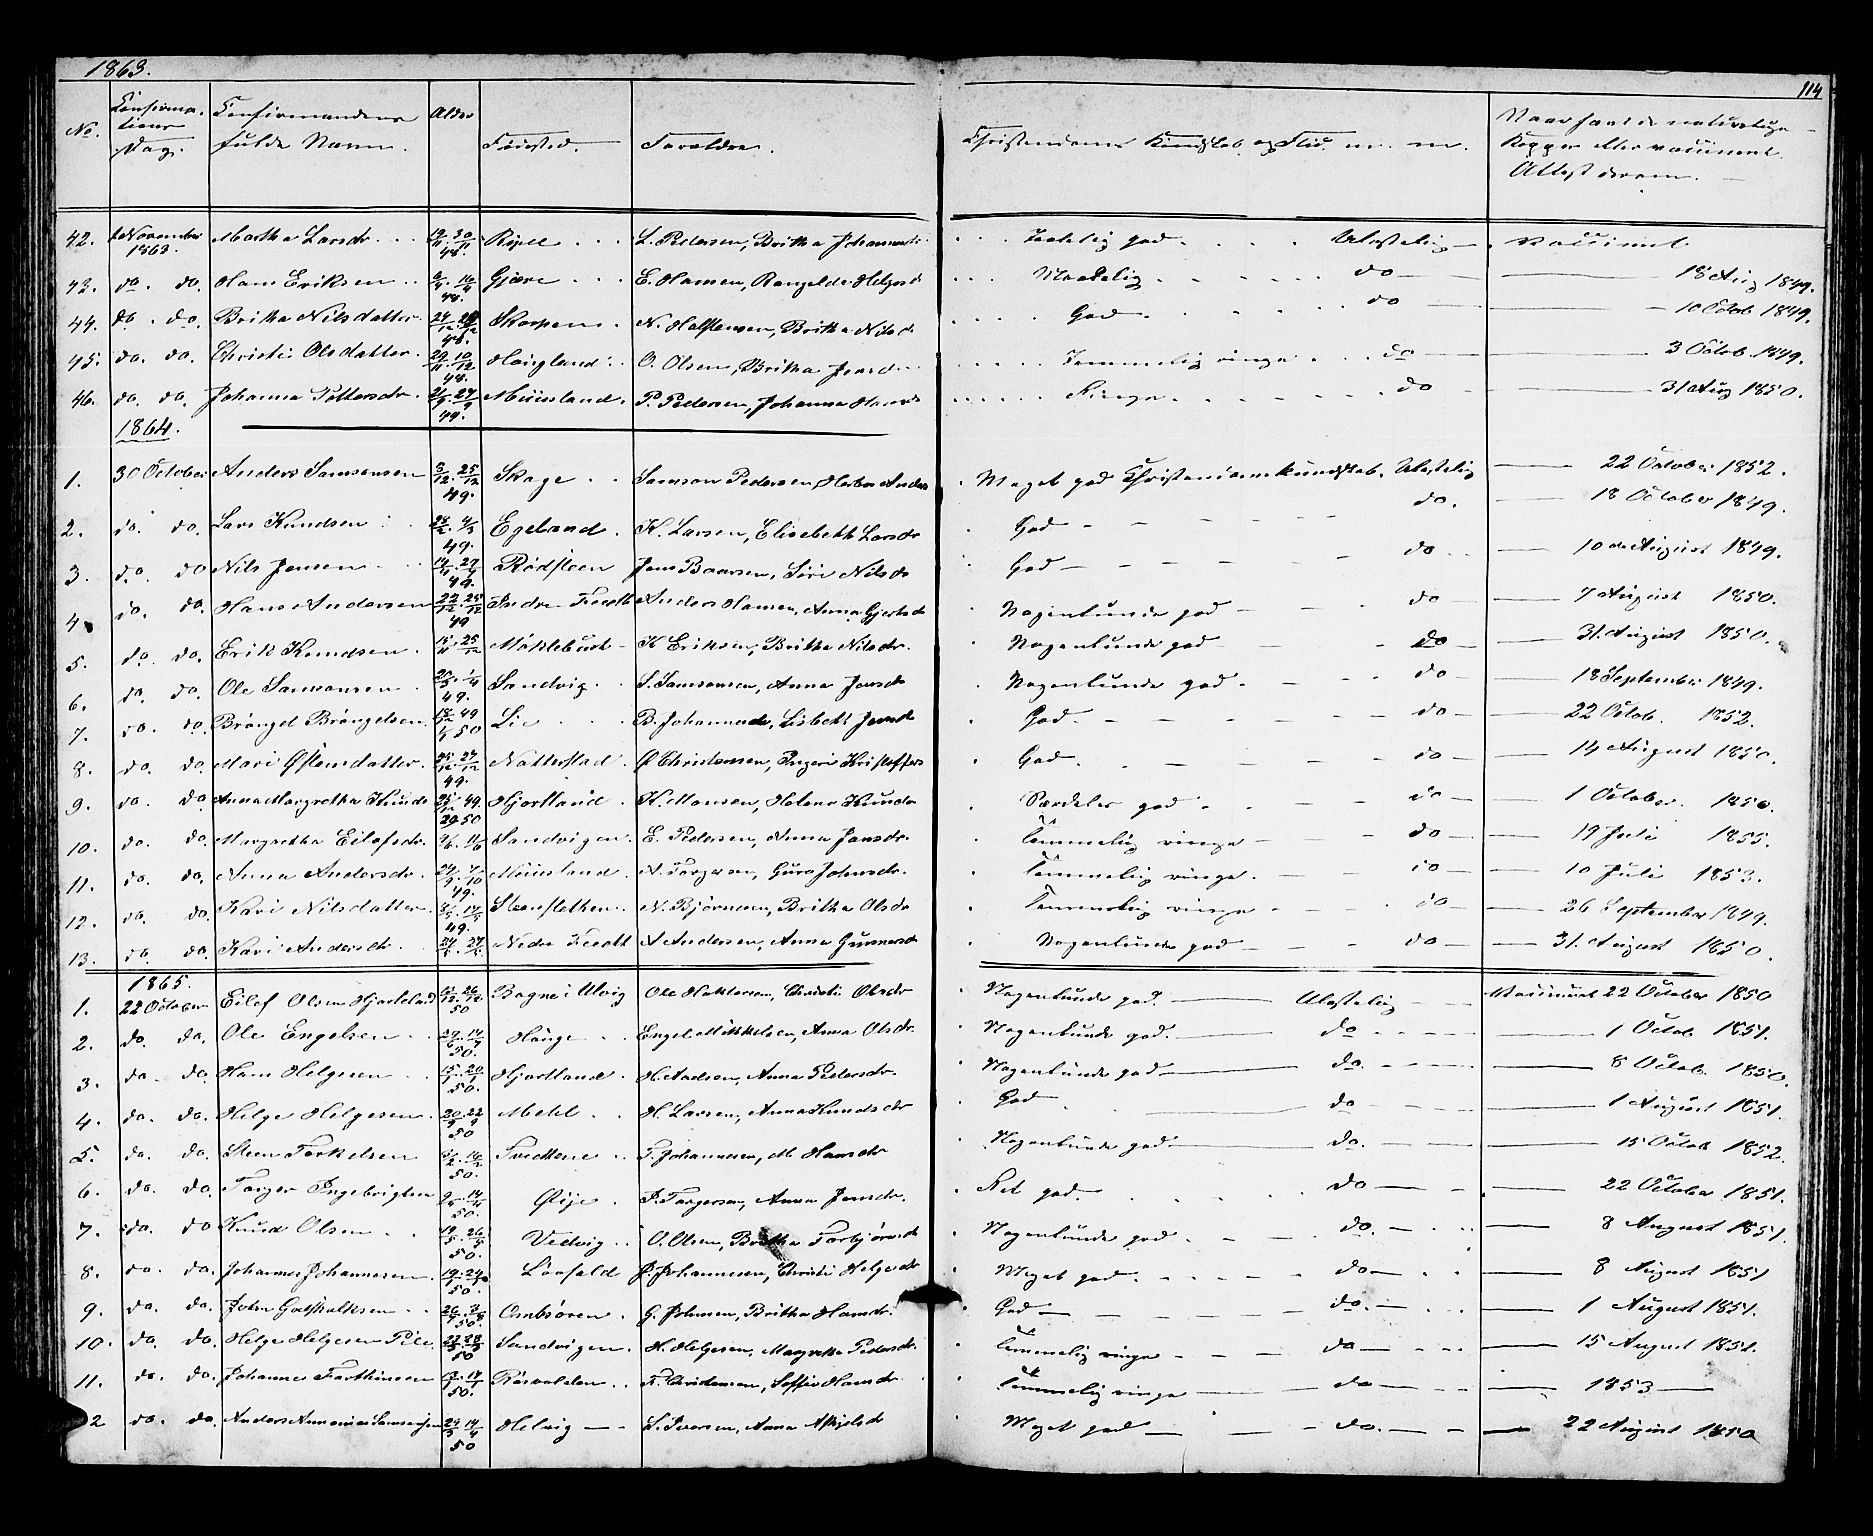 1863.
114
No.
Confirma-
tions
Dag.
Confirmandens
fulde Navn.
Alder
Fødested.
Forældre.
Christendoms Kundskab og Flid m. m.
Naar havt de naturlige
Kopper eller vaccineret.
Attest derom.
42. 1 November 1863. Martha Larsdr. 19/11 30/11 48. L. Pedersen, Britha Johannesdr. Taalelig god. Ulastelig vaccineret
43. do. do. Hans Eriksen Gjære E. Hansen, Rangelde Helgesd Maadelig do 18 Aug 1849.
44. do. do. Britha Nilsdatter 48. Skorpen N. Halstensen, Britha Nilsd God do 10 Octob 1849.
45. do. do. Christi Olsdatter 29/11 10/12 48. Haugland O. Olsen, Britha Jensdr Temmelig ringe do 3 Octob. 1849.
46. do. do. Johanna Pettersdr. 49. Muusland. P. Pedersen, Johanna Hansd Ringe. do 31 Aug 1850.
1864.
1. 30 October Anders Samsonsen 3/12 25/12 49. Skage Samson Pedersen, Anders Meget god Christendomskundskab. Ulastelig 22 October 1852.
2. do. do. Lars Knudsen 49. Egeland K. Larsen, Elisabeth Larsdr God do. 18 October 1849.
3. do. do Nils Jensen 49. Rødsteen Jens Baarsen, Siri Nilsdr God do 10 de August 1849.
4. do. do. Hans Andersen 22/12 25/12 49 Indre Tvedt Anders Hansen, Anna Gjertsdr Nogenlunde god do 7 August 1850.
5. do. do. Erik Knudsen 15/11 25/12 Møklebust K Eriksen, Britha Nilsdr. Nogenlunde god do 31. August 1850.
6. do. do. Ole Samsonsen 49. Sandvig S. Samsonsen, Anna Jensdr Nogenlunde god. do 18 September 1849.
7. do. do. Brangel Brangelsen 50 Lie B. Johannesdr, Lisbeth Jensd God. do 22 Octob. 1852.
8. do. do. Mari Østensdatter 49. Natterstad Ø Christensen, Ingeri Kristoffers God. do 14 August 1850.
9. do. do. Anna Margretha Knuds 49. 50 Hjortland K. Monsen, Helene Knudsdr Særdeles god do 1 October. 1850.
10. do. do. Margretha Eilefsdr. Sandvigen E. Pedersen, Anna Jansdr. Temmelig ringe do 19 Juli 1855.
11. do. do. Anna Andersdr. 49. Muusland A. Torgersen, Guro Johnsdr. Temmelig ringe. do 10 Juli 1853.
12. do. do. Kari Nilsdatter 49. Steensletten N. Bjørnsen, Britha Olsdr Temmelig ringe do 26 September 1849.
13. do. do. Kari Andersdr. Nedre Tvedt A Andersen, Anna Gunnarsdr Nogenlunde god do 31. August 1850.
1865.
1. 22 October Eilef Olsen Hjorteland 50 Bagne i Ulvig Ole Haktorsen, Christi Olsdr Nogenlunde god. Ulastelig Vaccineret 22 October 1850
2. do. do. Ole Engelsen 50. Hauge Engel Mikkelsen, Anna Olsdr Nogenlunde god. do 1 Octob. 1851.
3. do. do. Hans Helgesen 50. Hjortland H. Aadsen, Anna Pedersdr. Nogenlunde god do. 8 Octob. 1850.
4. do. do. Helge Helgesen 50 Mehl H. Larsen, Anna Knudsdr God do 1 August 1851.
5. do. do. Steen Torkelsen 50. Tvedtene T. Johannesen, M. Hansdr Nogenlunde god do. 15 Octob 1852.
6. do. do. Torger Ingebrigtsen 50. Øije I. Torgersen, Anna Jensdr. Ret god. do 22 October 1851.
7. do. do Knud Olsen 19/5 26/5 50. Vedvig O. Olsen, Britha Torbjørnsdr Nogenlunde god do. 8 August 1851.
8. do. do. Johannes Johannesen 50. Løvfald J. Johannesen, Christi Helgesdr Meget god. do 8 August 1851
9. do. do. John Gotskalksen 50 Ombsøren G. Johnsen, Britha Hansdr. God do. 1 August 1851.
10. do. do. Helge Helgesen Pile 50 Sandvigen H. Helgesen, Margretha Pedersdr. Temmelig ringe do 15 August 1851.
11. do. do. Johannes Torkelsen 50. T. Christensen, Hansdr Temmelig ringe do 1853
2 do. do. Anders Samsonsen 50 Helvig L. Iversen, Anna Meget god do. 22 August 1850